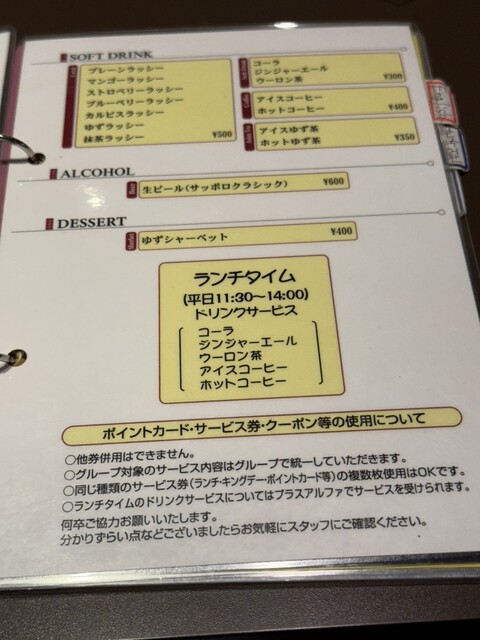 SOFT DRINK
プレーンラッシー
マンゴーラッシー
ストロベリーラッシー
ブルーベリーラッシー
カルピスラッシー
ゆずラッシー
抹茶ラッシー ¥500
コーラ
ジンジャーエール
ウーロン茶 ¥300
アイスコーヒー
ホットコーヒー ¥400
アイスゆず茶
ホットゆず茶 ¥350
ALCOHOL
Beer 生ビール(サッポロクラシック) ¥600
DESSERT
ゆずシャーベット ¥400
ランチタイム
(平日11:30～14:00)
ドリンクサービス
コーラ
ジンジャーエール
ウーロン茶
アイスコーヒー
ホットコーヒー
ポイントカード・サービス券・クーポン等の使用について
○他券併用はできません。
○グループ対象のサービス内容はグループで統一していただきます。
○同じ種類のサービス券(ランチキングデー・ポイントカード等)の複数枚使用はOKです。
○ランチタイムのドリンクサービスについてはプラスアルファでサービスを受けられます。
何卒ご協力お願いいたします。
分かりずらい点などございましたらお気軽にスタッフにご確認ください。